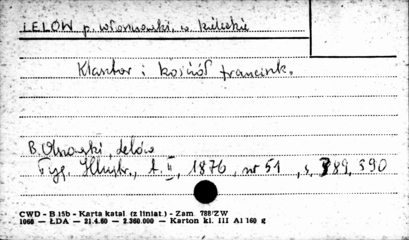 LELÓW p. włoszczowski, w. kieleckie
Klasztor i kościół francisk.
B. Olszowski, Lelów
Tyg. Illustr., t. II, 1876, nr 51, s. 389, 390
CWD - B 15b - Karta katal. (z liniat.) - Zam. 788/ZW
1068 — ŁDA — 21.4.60 — 2.360.000 — Karton kl. III A1 160 g